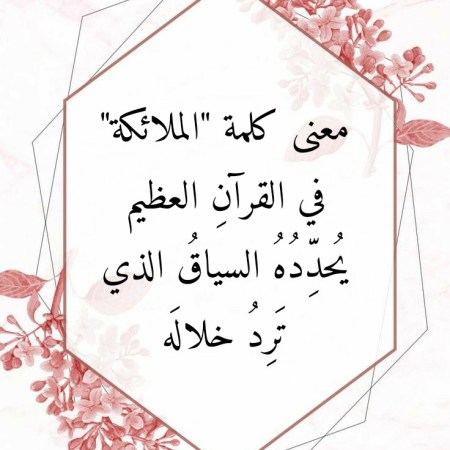 معنى كلمة "الملائكة"
في القرآنِ العظيم
يُحدِّدُهُ السياقُ الذي
تَرِدُ خلالَه